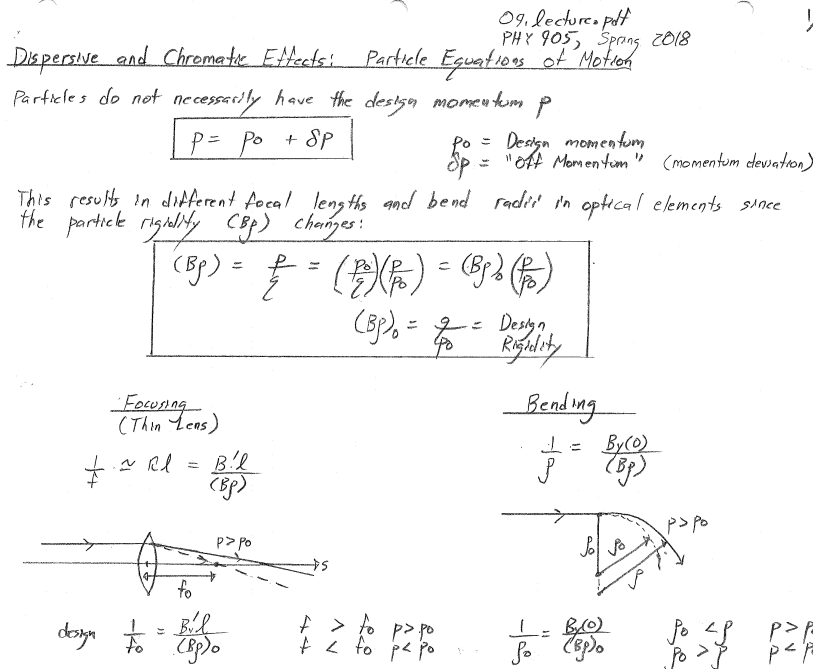 09.lecture.pdf
PHY 905, Spring 2018
Dispersive and Chromatic Effects: Particle Equations of Motion
Particles do not necessarily have the design momentum p
p = p0 + δp
p0 = Design momentum
δp = "Off Momentum" (momentum deviation)
This results in different focal lengths and bend radii in optical elements since
the particle rigidity (Bρ) changes:
(Bρ) = p/q = (p0/q)(p/p0) = (Bρ)0 (p/p0)
(Bρ)0 = q/p0 = Design
Rigidity
Focusing
(Thin Lens)
1/f ≃ κl = B'l/(Bρ)
p > p0
s
f0
design 1/f0 = B'l/(Bρ)0
f > f0 p > p0
f < f0 p < p0
Bending
1/ρ = By(0)/(Bρ)
p > p0
ρ0 ρ0
ρ
1/ρ0 = By(0)/(Bρ)0
ρ0 < ρ p > p
ρ0 > ρ p < p